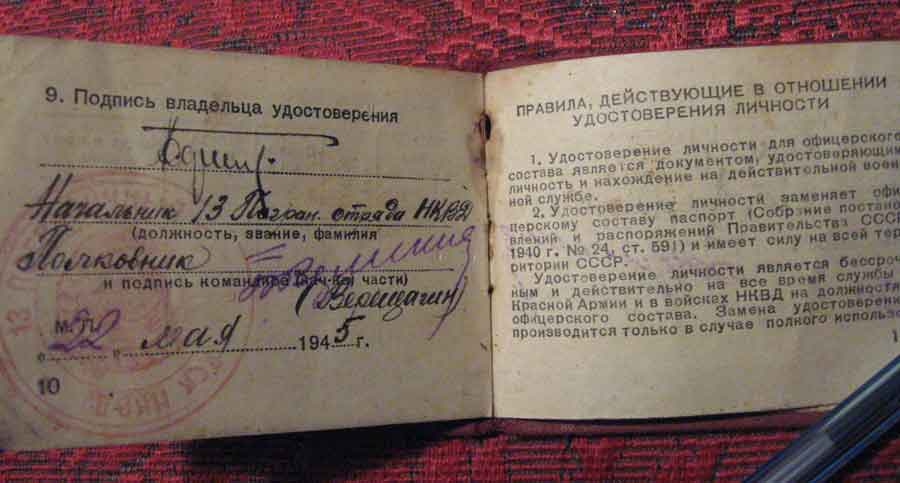 9. Подпись владельца удостоверения
Начальник 13 Погран. отряда НКВД
(должность, звание, фамилия
Полковник
и подпись командира (нач-ка) части)
(Верещагин)
М.П.
„ 22 „ мая 1945 г.
10
13
НКВД
ПРАВИЛА, ДЕЙСТВУЮЩИЕ В ОТНОШЕНИИ
УДОСТОВЕРЕНИЯ ЛИЧНОСТИ
1. Удостоверение личности для офицерского
состава является документом, удостоверяющим
личность и нахождение на действительной воен-
ной службе.
2. Удостоверение личности заменяет офи-
церскому составу паспорт (Собрание постанов-
влений и распоряжений Правительства СССР
1940 г. № 24, ст. 591) и имеет силу на всей тер-
ритории СССР.
Удостоверение личности является бессроч-
ным и действительно на все время службы
Красной Армии и в войсках НКВД на должностя
офицерского состава. Замена удостоверени
производится только в случае полного использо
1